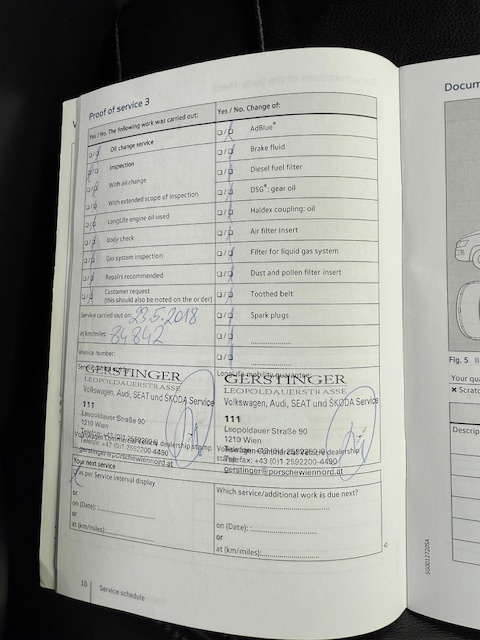 Proof of service 3
Yes / No. The following work was carried out:
Oil change service
Inspection
With oil change
With extended scope of inspection
LongLife engine oil used
Body check
Gas system inspection
Repairs recommended
Customer request
(this should also be noted on the order)
Service carried out on: 23.5.2018
at km/miles: 84842
Invoice number:
GERSTINGER
LEOPOLDAUERSTRASSE
Volkswagen, Audi, SEAT und ŠKODA Service
111
Leopoldauer Straße 90
1210 Wien
Telefax: +43 (0)1 2592200-4490
gerstinger@porschewiennord.at
Your next service
as per Service interval display
or
on (Date):
or
at (km/miles):
Yes / No. Change of:
AdBlue®
Brake fluid
Diesel fuel filter
DSG®: gear oil
Haldex coupling: oil
Air filter insert
Filter for liquid gas system
Dust and pollen filter insert
Toothed belt
Spark plugs
LongLife mobility guarantee:
GERSTINGER
LEOPOLDAUERSTRASSE
Volkswagen, Audi, SEAT und ŠKODA Service
111
Leopoldauer Straße 90
1210 Wien
Telefax: +43 (0)1 2592200-4490
gerstinger@porschewiennord.at
Which service/additional work is due next?
on (Date):
or
at (km/miles):
10 Service schedule
Docum
Fig. 5
Your qu
Scratc
Descrip